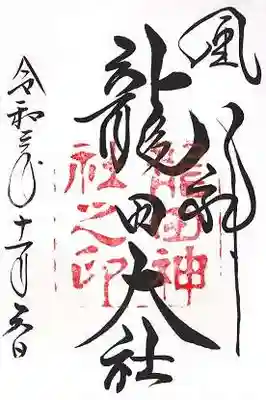 風
龍田大社
龍田神
社之印
令和三年十一月 日